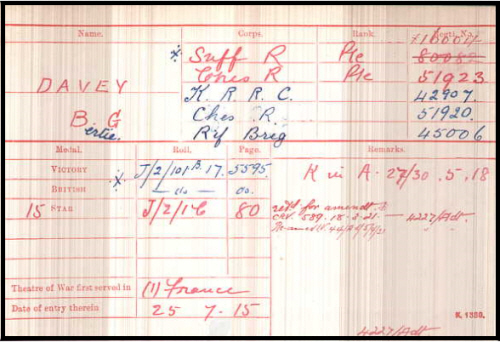 Name. Corps. Rank Regtl. No.
DAVEY
B. G
ertie.
* Suff R Pte
Ches R Pte 51923
K. R. R. C. 42907.
Ches. R. 51920.
Rif Brig 45006
Medal. Roll. Page. Remarks.
VICTORY J/2/101B.17. 5595 K in A. 27/30.5.18
BRITISH do do.
15 STAR J/2/1C 80
4227/Adt.
Theatre of War first served in (1) France
Date of entry therein 25 7. 15
K. 1380.
4227/Adt